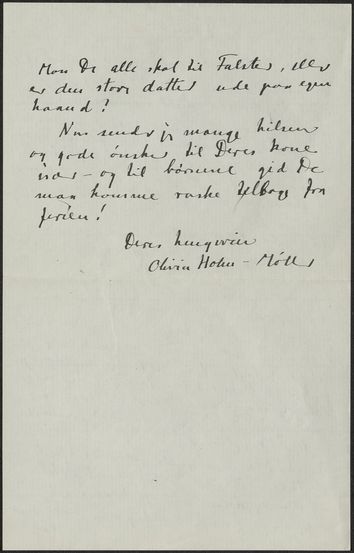 Mon De alle skal til Falster, eller
er den store datter ude paa egen
haand?
Nu sender jeg mange hilsen
og gode ønsker til Deres kone
især – og til børnene gid De
maa komme raske tilbage fra
ferien!
Deres hengivne
Olivia Holm-Møller